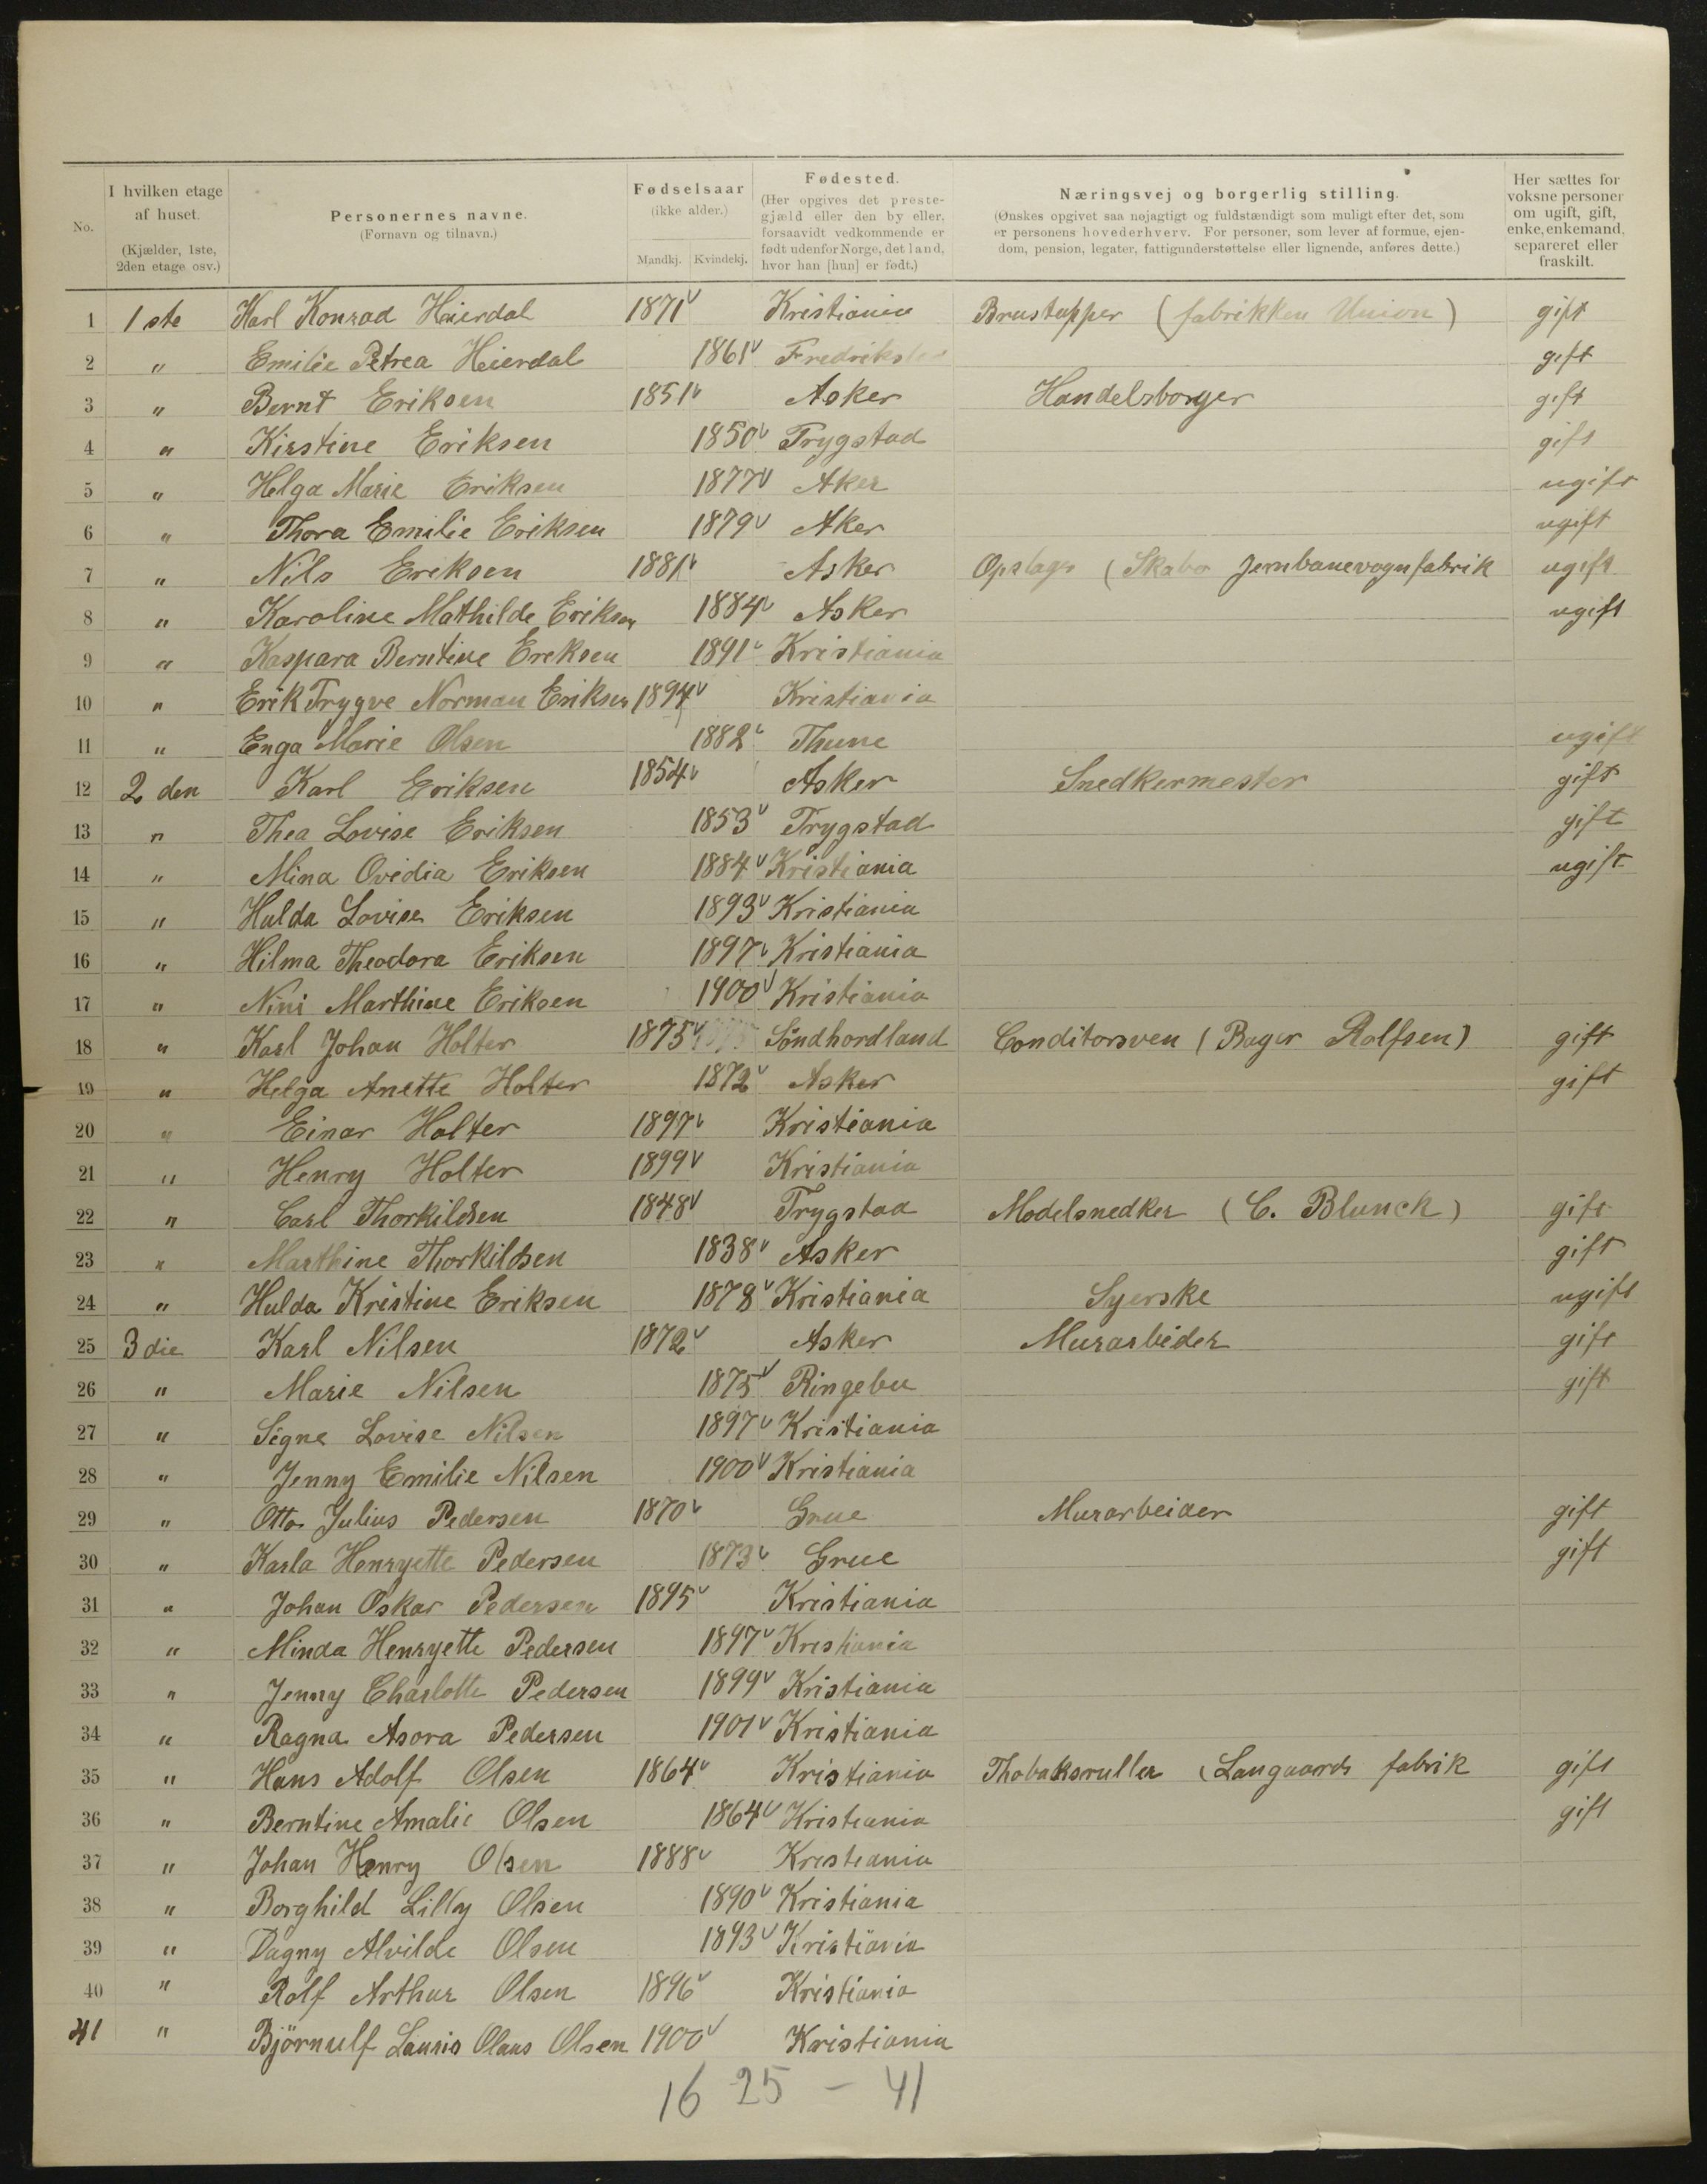 No. | I hvilken etage af huset. (Kjælder, 1ste, 2den etage osv.) | Personernes navne. (Fornavn og tilnavn.) | Fødselsaar (ikke alder.) Mandkj. Kvindekj. | Fødested. (Her opgives det prestegjæld eller den by eller, forsaavidt vedkommende er født udenfor Norge, det land, hvor han [hun] er født.) | Næringsvej og borgerlig stilling. (Ønskes opgivet saa nøjagtigt og fuldstændigt som muligt efter det, som er personens hovederhverv. For personer, som lever af formue, ejendom, pension, legater, fattigunderstøttelse eller lignende, anføres dette.) | Her sættes for voksne personer om ugift, gift, enke, enkemand, separeret eller fraskilt.
1 1ste Karl Konrad Heierdal 1871 Kristiania Brustapper (fabrikken Union) gift
2 " Emilie Petrea Heierdal 1861 gift
3 " Bernt Eriksen 1851 Asker Handelsborger gift
4 " Kirstine Eriksen 1850 Trygstad gift
5 " Helga Marie Eriksen 1877 Aker ugift
6 " Thora Emilie Eriksen 1879 Aker ugift
7 " Nils Eriksen 1881 Asker (Skabo Jernbanevognfabrik ugift
8 " Karoline Mathilde Eriksen 1884 Asker ugift
9 " Kaspara Berntine Eriksen 1891 Kristiania
10 " Erik Trygve Norman Eriksen 1894 Kristiania
11 " Enga Marie Olsen 1882 Thune ugift
12 2den Karl Eriksen 1854 Asker Snedkermester gift
13 " Thea Lovise Eriksen 1853 Trygstad gift
14 " Mina Ovidia Eriksen 1884 Kristiania ugift
15 " Hulda Lovise Eriksen 1893 Kristiania
16 " Hilma Theodora Eriksen 1897 Kristiania
17 " Nini Marthine Eriksen 1900 Kristiania
18 " Karl Johan Holter 1875 Söndhordland Conditorsven (Bager Rolfsen) gift
19 " Helga Anette Holter 1872 Asker gift
20 " Einar Holter 1897 Kristiania
21 " Henry Holter 1899 Kristiania
22 " Carl Thorkildsen 1848 Trygstad Modelsnedker (C. Blunck) gift
23 " Marthine Thorkildsen 1838 Asker gift
24 " Hulda Kristine Eriksen 1878 Kristiania Syerske ugift
25 3die Karl Nilsen 1872 Asker Murarbeider gift
26 " Marie Nilsen 1875 Ringebu gift
27 " Signe Lovise Nilsen 1897 Kristiania
28 " Jenny Emilie Nilsen 1900 Kristiania
29 " Otto Julius Pedersen 1870 Grue Murarbeider gift
30 " Karla Henryette Pedersen 1873 Grue gift
31 " Johan Oskar Pedersen 1895 Kristiania
32 " Minda Henryette Pedersen 1897 Kristiania
33 " Jenny Charlotte Pedersen 1899 Kristiania
34 " Ragna Asora Pedersen 1901 Kristiania
35 " Hans Adolf Olsen 1864 Kristiania Thobaksruller (Langaards fabrik gift
36 " Berntine Amalie Olsen 1864 Kristiania gift
37 " Johan Henry Olsen 1888 Kristiania
38 " Borghild Lilly Olsen 1890 Kristiania
39 " Dagny Alvilde Olsen 1893 Kristiania
40 " Rolf Arthur Olsen 1896 Kristiania
41 " Björnulf Lauris Olaus Olsen 1900 Kristiania
16 25 – 41